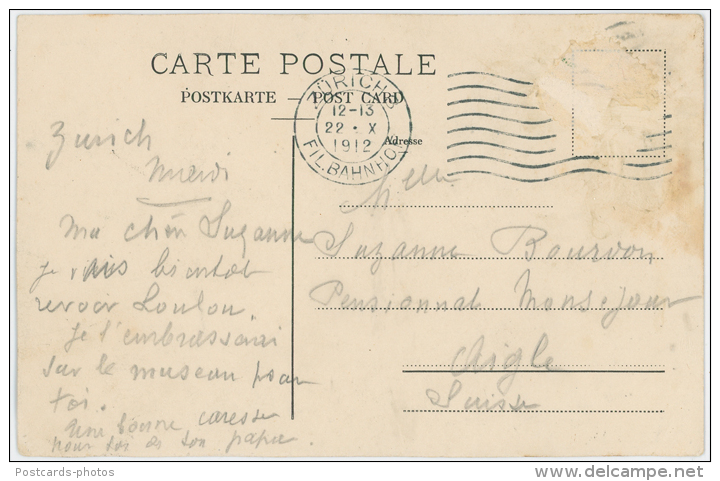 CARTE POSTALE
POSTKARTE — POST CARD
Adresse
ZÜRICH
12-13
22 · X
1912
FIL. BAHNHOF
Zurich
Mardi
Ma chère Suzanne
je vais bientôt
revoir Loulou.
je l'embrasserai
sur le museau pour
toi.
Une bonne caresse
pour toi de ton papa.
Mlle
Suzanne Bourdon
Pensionnat Monsejour
Aigle
Suisse
Postcards-photos
delcampe.net